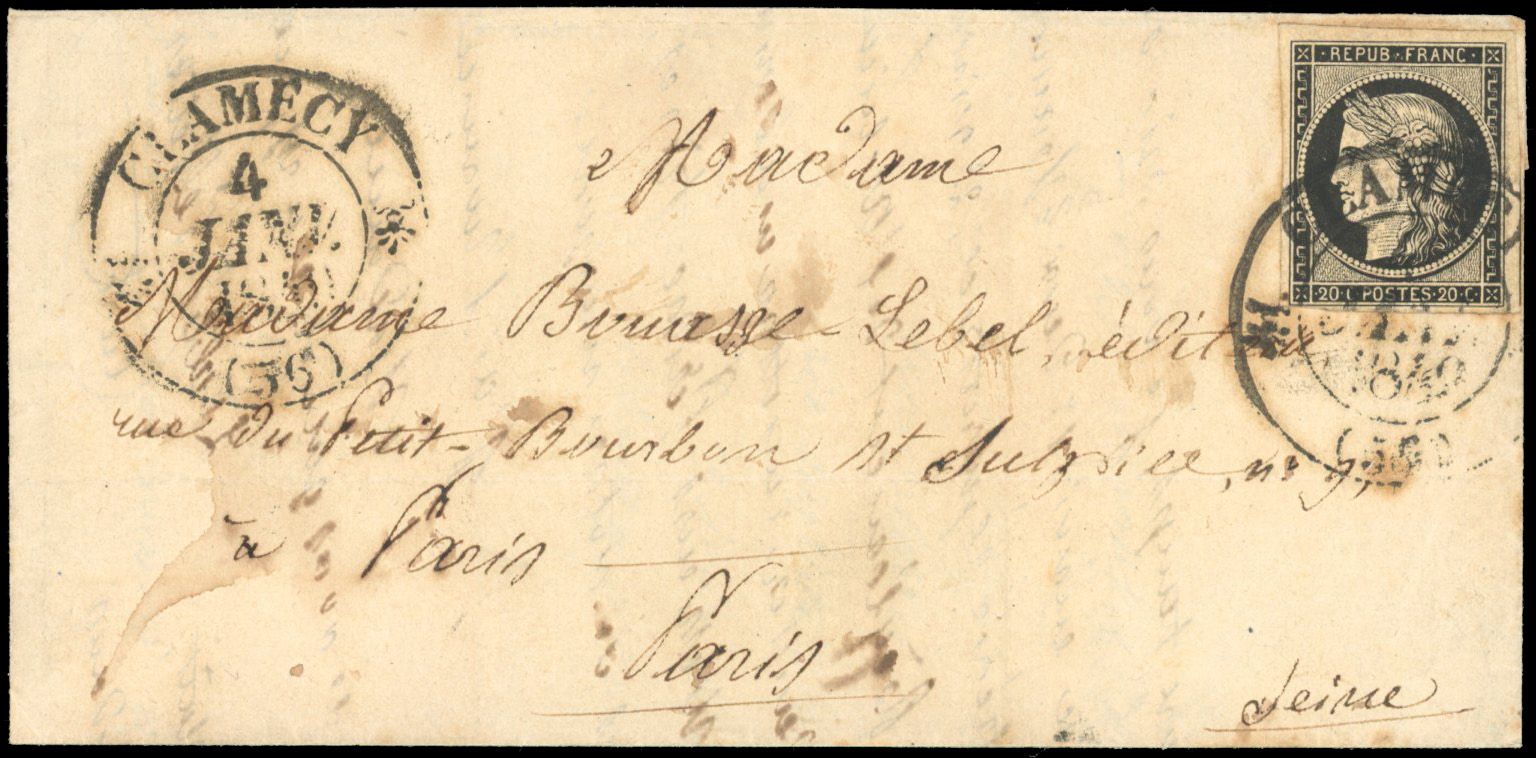 CLAMECY
4
JANV.
(56)
REPUB · FRANC ·
20 · C POSTES · 20 · C
(56)
Madame
Madame Bouasse-Lebel, éditeur
rue du Petit-Bourbon St Sulpice, no 9,
à Paris
Paris
Seine